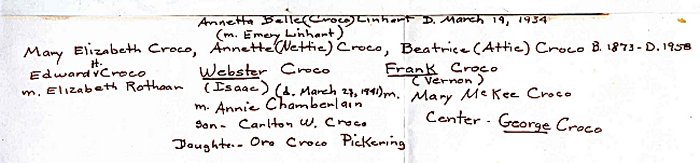 Annetta Belle (Croco) Linhart D. March 19, 1934
(m. Emery Linhart)
Mary Elizabeth Croco, Annette (Nettie) Croco, Beatrice (Attie) Croco B. 1873 - D. 1958
H.
Edward Croco Webster Croco Frank Croco
m. Elizabeth Rothaar (Isaac) (d. March 29, 1941) (Vernon) m. Mary McKee Croco
m. Annie Chamberlain
son - Carlton W. Croco Center - George Croco
Daughter - Oro Croco Pickering